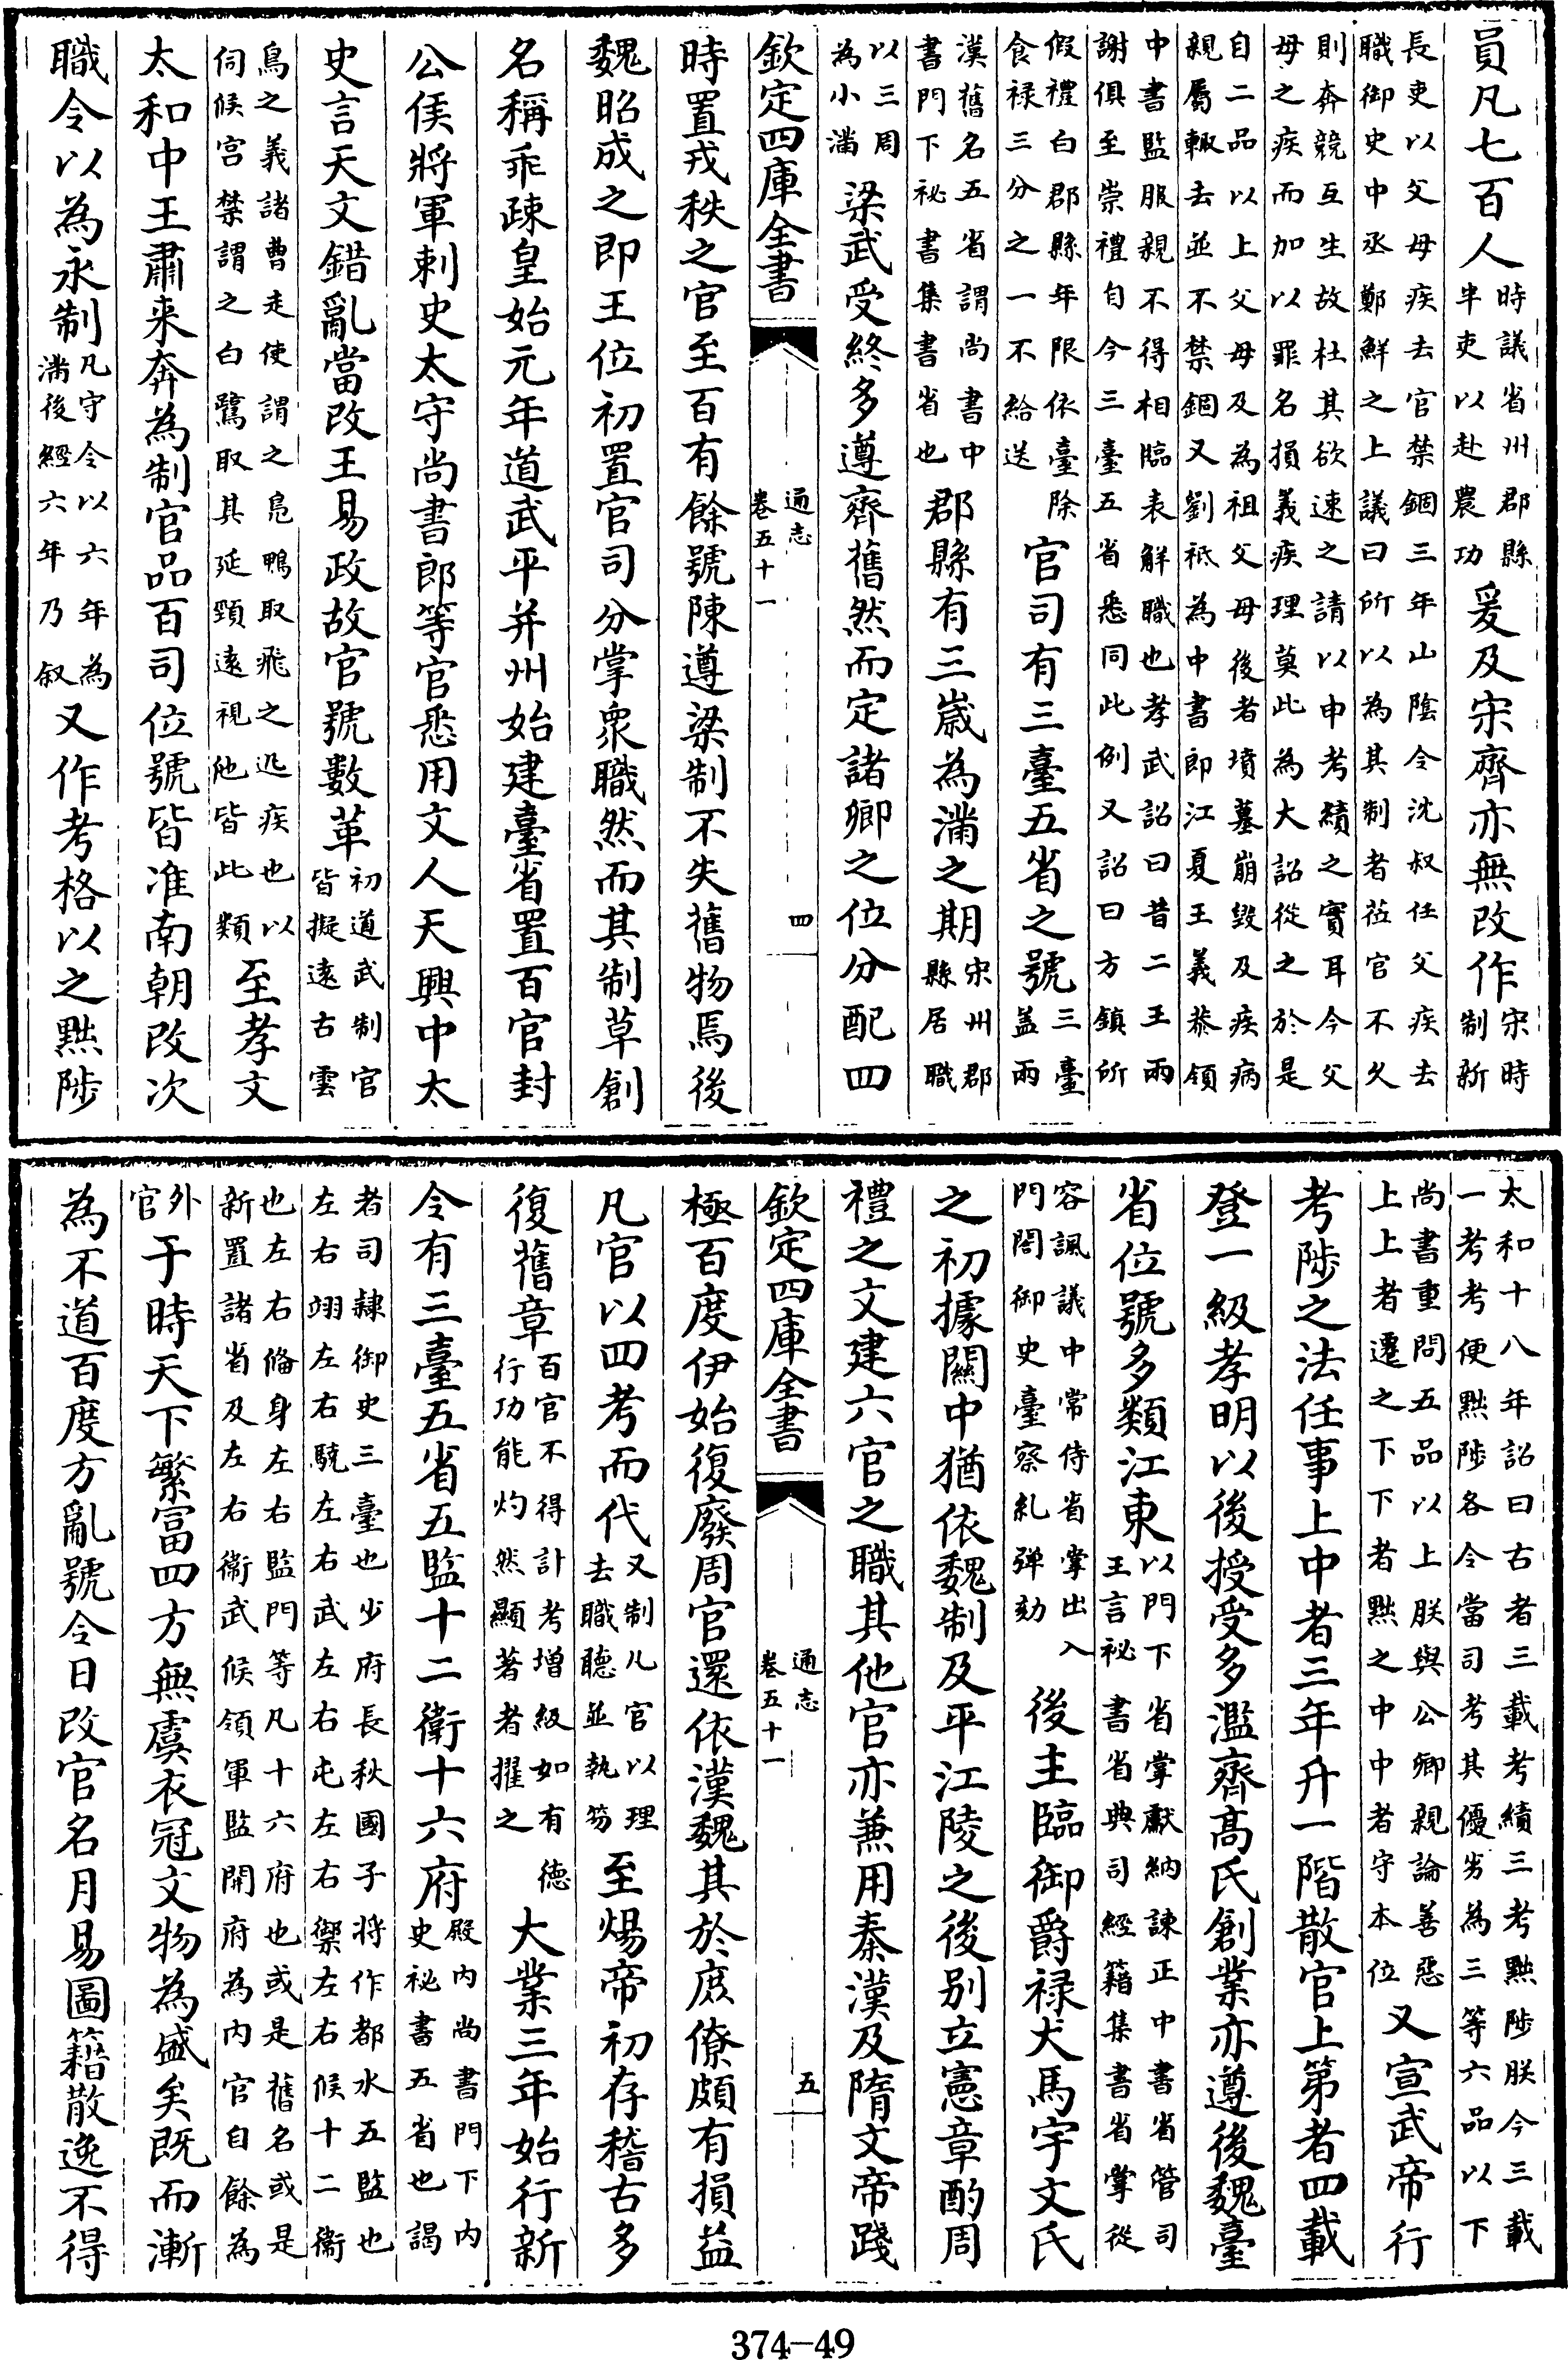 員凡七百人時議省州郡縣半吏以赴農功爰及宋齊亦無改作宋時制新
長吏以父母疾去官禁錮三年山陰令沈叔任父疾去
職御史中丞鄭鮮之上議曰所以為其制者蒞官不久
則奔競互生故杜其欲速之請以申考績之實耳今父
母之疾而加以罪名損義疾理莫此為大詔從之於是
自二品以上父母及為祖父母後者墳墓崩毀及疾病
親屬輙去並不禁錮又劉祗為中書郎江夏王義恭領
中書監服親不得相臨表解職也孝武詔曰昔二王兩
謝俱至崇禮自今三臺五省悉同此例又詔曰方鎮所
假禮白郡縣年限依臺除食禄三分之一不給送官司有三臺五省之號三臺盖兩
漢舊名五省謂尚書中書門下祕書集書省也郡縣有三歲為滿之期宋州郡縣居職
以三周為小滿梁武受終多遵齊舊然而定諸卿之位分配四
欽定四庫全書
通志
卷五十一
四
時置戎秩之官至百有餘號陳遵梁制不失舊物焉後
魏昭成之即王位初置官司分掌衆職然而其制草創
名稱乖疎皇始元年道武平并州始建臺省置百官封
公侯將軍刺史太守尚書郎等官悉用文人天興中太
史言天文錯亂當改王易政故官號數革初道武制官皆擬遠古雲
鳥之義諸曹走使謂之鳧鴨取飛之迅疾也以
伺候官禁謂之白鷺取其延頸遠視他皆此類至孝文
太和中王肅来奔為制官品百司位號皆准南朝改次
職令以為永制凡守令以六年為滿後經六年乃叙又作考格以之黜陟
太和十八年詔曰古者三載考績三考黜陟朕今三載
一考考便黜陟各令當司考其優劣為三等六品以下
尚書重問五品以上朕與公卿親論善惡
上上者遷之下下者黜之中中者守本位又宣武帝行
考陟之法任事上中者三年升一階散官上第者四載
登一級孝明以後授受多濫齊髙氏創業亦遵後魏臺
省位號多類江東以門下省掌獻納諫正中書省管司王言祕書省典司經籍集書省掌從
容諷議中常侍省掌出入門閤御史臺察糺弹劾後主臨御爵禄犬馬宇文氏
之初據關中猶依魏制及平江陵之後别立憲章酌周
禮之文建六官之職其他官亦兼用秦漢及隋文帝踐
欽定四庫全書
通志
卷五十一
五
極百度伊始復廢周官還依漢魏其於庶僚頗有損益
凡官以四考而代又制凡官以理去職聴並執笏至煬帝初存稽古多
復舊章百官不得計考增級如有德行功能灼然顯著者擢之大業三年始行新
令有三臺五省五監十二衛十六府殿内尚書門下内史祕書五省也謁
者司隷御史三臺也少府長秋國子将作都水五監也
左右翊左右驍左右武左右屯左右禦左右候十二衛
也左右備身左右監門等凡十六府也或是舊名或是
新置諸省及左右衞武候領軍監開府為内官自餘為
外官于時天下繁富四方無虞衣冠文物為盛矣既而漸
為不道百度方亂號令日改官名月易圖籍散逸不得
374-49